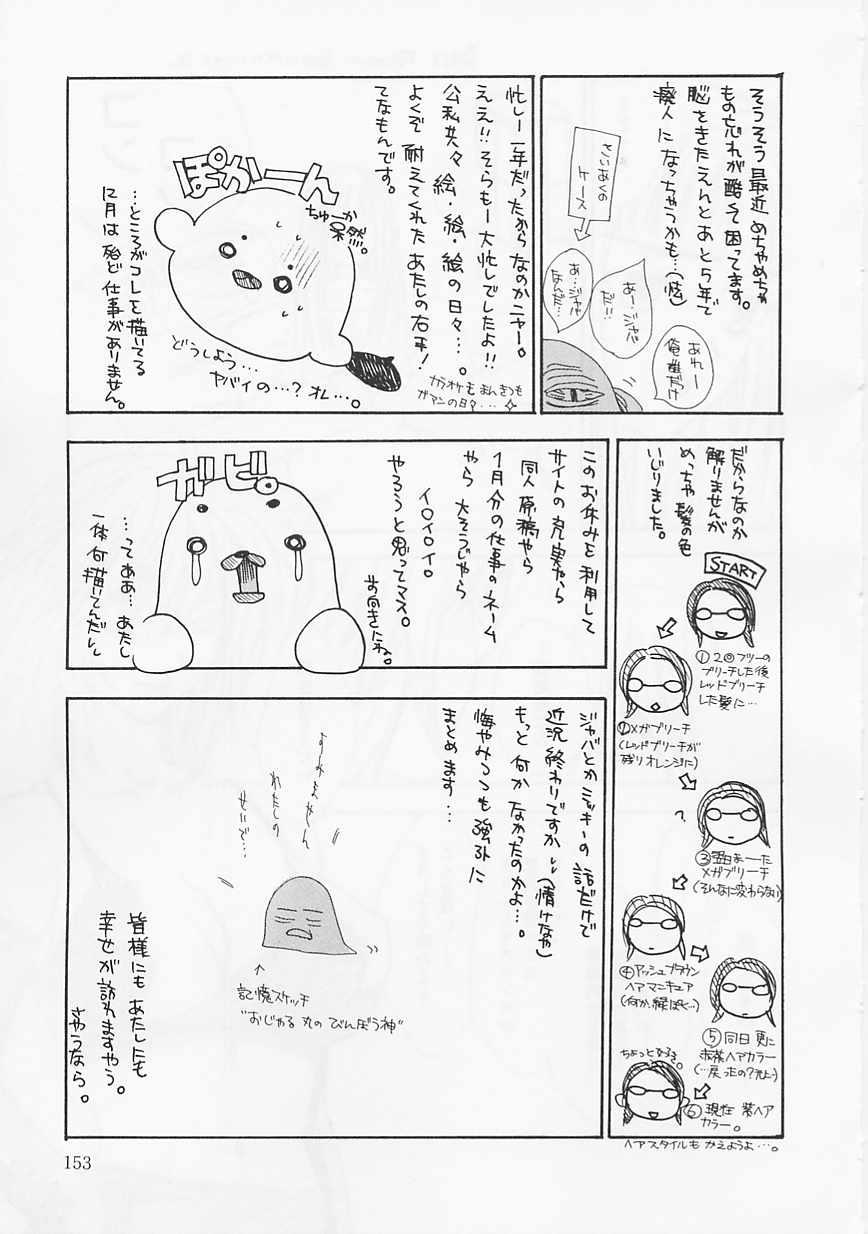 そうそう最近めちゃめちゃ
もの忘れが酷くて困ってます。
脳をきたえんとあと5年で
廃人になっちゃうかも…(怯)
とくいあくの
ケース
あれー
俺誰だっけ
あー…ジャバ
だ!!
あ…ジャバ
なんだ…
忙しー1年だったからなのかニャー。
ええ!!そらもー大忙しでしたよ!!
公私共々絵・絵・絵の日々…。
よくぞ耐えてくれたあたしの右手!
てなもんです。
カラオケもまんきつも
ガマンの日々…
ぽかーん
ちゅーか
呆然。
…ところがコレを描いてる
12月は殆ど仕事がありません。
どうしよう…
ヤバイの…?オレ…。
だからなのか
解りませんが
めっちゃ髪の色
いじりました。
START
①2回フツーの
ブリーチした後
レッドブリーチ
した髪に…
②メガブリーチ
(レッドブリーチが
残りオレンジに)
?
③翌日まーた
メガブリーチ
(そんなに変わらない)
④アッシュブラウン
ヘアマニキュア
(何か、緑ぽく…)
⑤同日更に
赤茶ヘアカラー
(…戻ったの?元に…)
ちょっと好き。
⑥現在紫ヘア
カラー。
ヘアスタイルもかえようよ…。
このお休みを利用して
サイトの充実やら
同人原稿やら
1月分の仕事のネーム
やら大そうじやら
イロイロイロ
やろうと思ってマス。
前向きにね。
ガビ。
…ってああ…あたし
一体何描いてんだし
ジャバとかミッキーの話だけで
近況終わりですか(情けなや)
もっと何かなかったのかよ…。
悔やみつつも強引に
まとめます…
すみません
わたしの
せいで…
↑
記憶スケッチ
"おじゃる丸のびんぼう神"
皆様にもあたしにも
幸せが訪れますやう。
さやうなら。
153